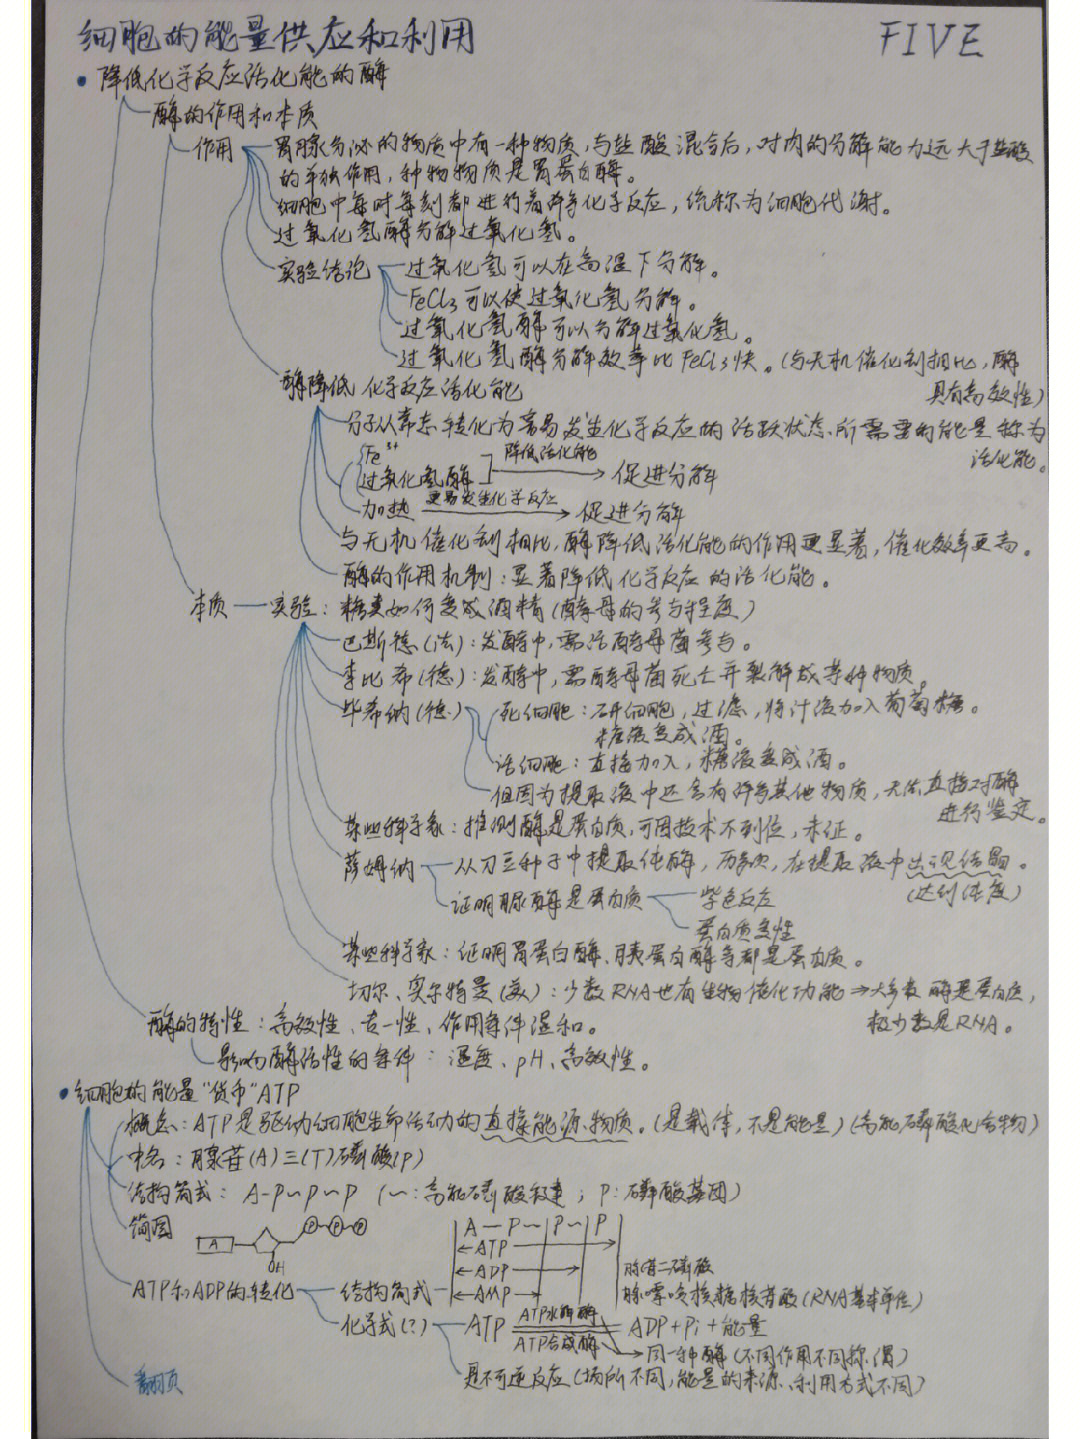 细胞的能量供应和利用
FIVE
降低化学反应活化能的酶
酶的作用和本质
作用
胃腺分泌的物质中有一种物质,与盐酸混合后,对肉的分解能力远大于盐酸
的单独作用,种物物质是胃蛋白酶。
细胞中每时每刻都进行着许多化学反应,统称为细胞代谢。
过氧化氢酶分解过氧化氢。
实验结论
过氧化氢可以在高温下分解。
FeCl3可以使过氧化氢分解。
过氧化氢酶可以分解过氧化氢。
过氧化氢酶分解效率比FeCl3快。(与无机催化剂相比,酶
具有高效性)
酶降低化学反应活化能
分子从常态转化为容易发生化学反应的活跃状态所需要的能量称为
活化能。
Fe3+
过氧化氢酶
降低活化能
促进分解
加热
更易发生化学反应
促进分解
与无机催化剂相比,酶降低活化能的作用更显著,催化效率更高。
酶的作用机制:显著降低化学反应的活化能。
本质
实验:糖类如何变成酒精(酵母的参与程度)
巴斯德(法):发酵中,需活酵母菌参与。
李比希(德):发酵中,需酵母菌死亡并裂解成某种物质。
毕希纳(德)
死细胞:研细胞,过滤,将汁液加入葡萄糖。
糖液变成酒。
活细胞:直接加入,糖液变成酒。
但因为提取液中还含有许多其他物质,无法直接对酶
进行鉴定。
某些科学家:推测酶是蛋白质,可因技术不到位,未证。
萨姆纳
从刀豆种子中提取纯酶,历多次,在提取液中出现结晶。
(达到纯度)
证明脲酶是蛋白质
紫色反应
蛋白质变性
某些科学家:证明胃蛋白酶、胰蛋白酶等都是蛋白质。
切尔、奥尔特曼(美):少数RNA也有生物催化功能⇒大多数酶是蛋白质,
极少数是RNA。
酶的特性:高效性、专一性、作用条件温和。
影响酶活性的条件:温度、pH、高效性。
细胞的能量“货币”ATP
概念:ATP是驱动细胞生命活动的直接能源物质。(是载体,不是能量)(高能磷酸化合物)
中名:腺苷(A)三(T)磷酸(P)
结构简式:A-P~P~P (~:高能磷酸键;P:磷酸基团)
简图
A
P P P
OH
A—P~ P~ P
ATP
ADP
AMP
腺苷二磷酸
腺嘌呤核糖核苷酸(RNA基本单位)
ATP和ADP的转化
结构简式
化学式(?)
ATP
ATP水解酶
ATP合成酶
ADP+Pi+能量
同一种酶(不同作用不同称谓)
是不可逆反应(场所不同,能量的来源、利用方式不同)
翻页